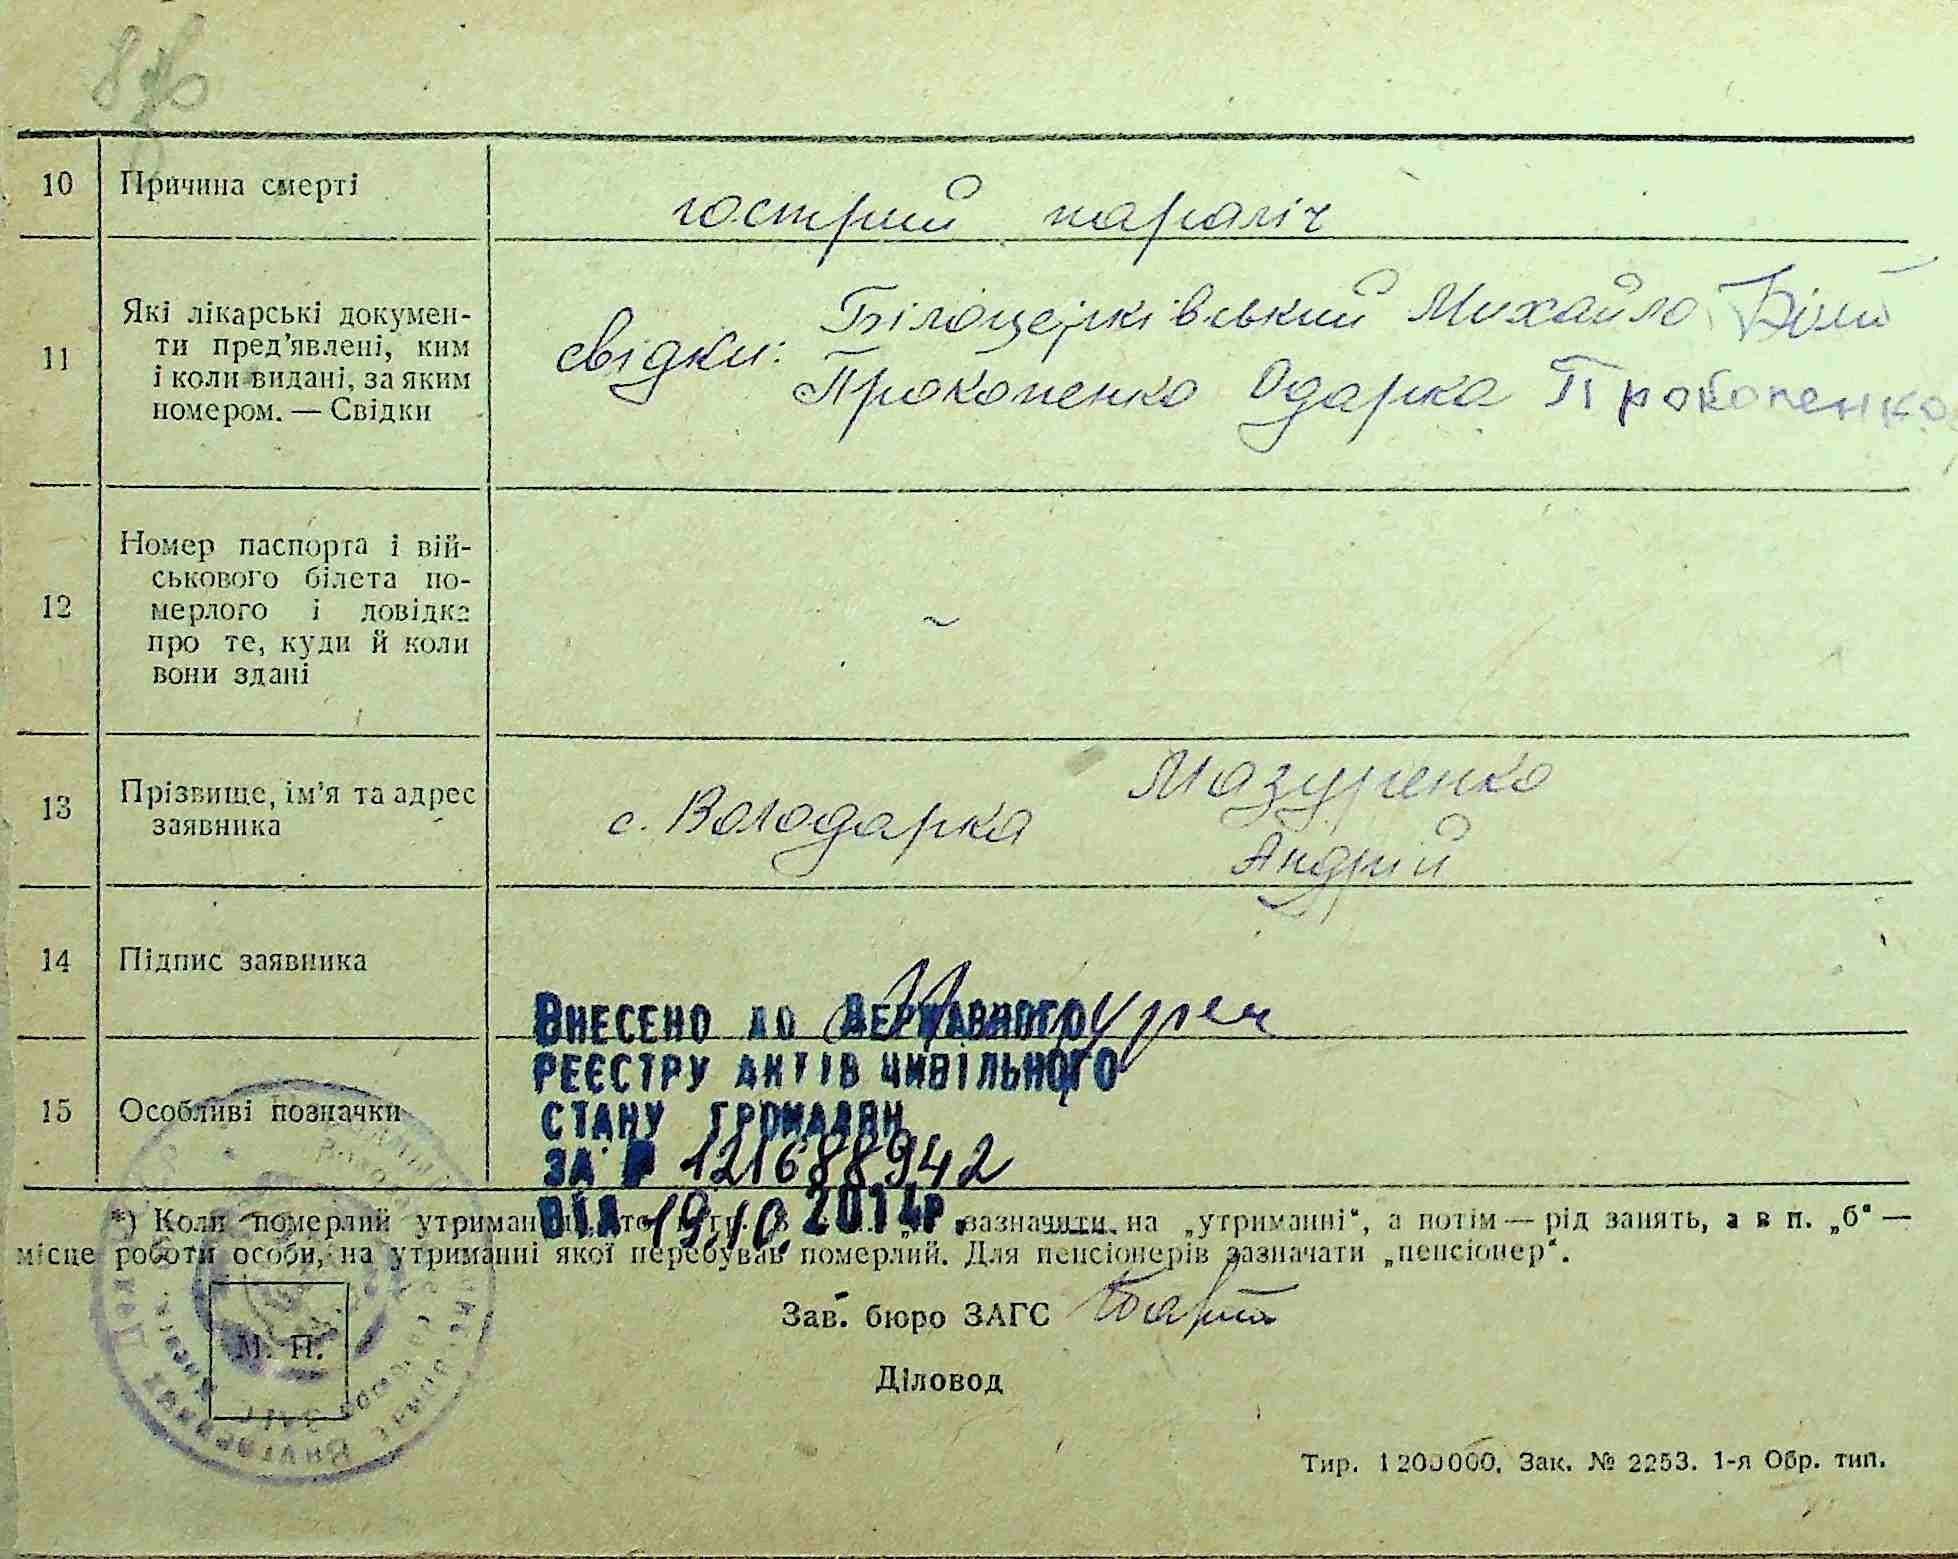 10 Причина смерті гострий параліч
11 Які лікарські докумен-
ти пред'явлені, ким
і коли видані, за яким
номером. — Свідки
свідки: Білоцерківський Михайло Біли
Прокопенко Одарка Прокопенко
12 Номер паспорта і вій-
ськового білета по-
мерлого і довідка
про те, куди й коли
вони здані
13 Прізвище, ім'я та адрес
заявника
с. Володарка Мазуренко
Андрій
14 Підпис заявника
15 Особливі позначки
Внесено до Державного
реєстру актів цивільного
стану громадян
за № 121688942
від 19.10.2014р.
*) Коли померлий зазначити на „утриманні", а потім — рід занять, а в п. „б" —
місце роботи особи, на утриманні якої перебував померлий. Для пенсіонерів зазначати „пенсіонер".
Зав. бюро ЗАГС
М. П.
Діловод
Тир. 1200000. Зак. № 2253. 1-я Обр. тип.